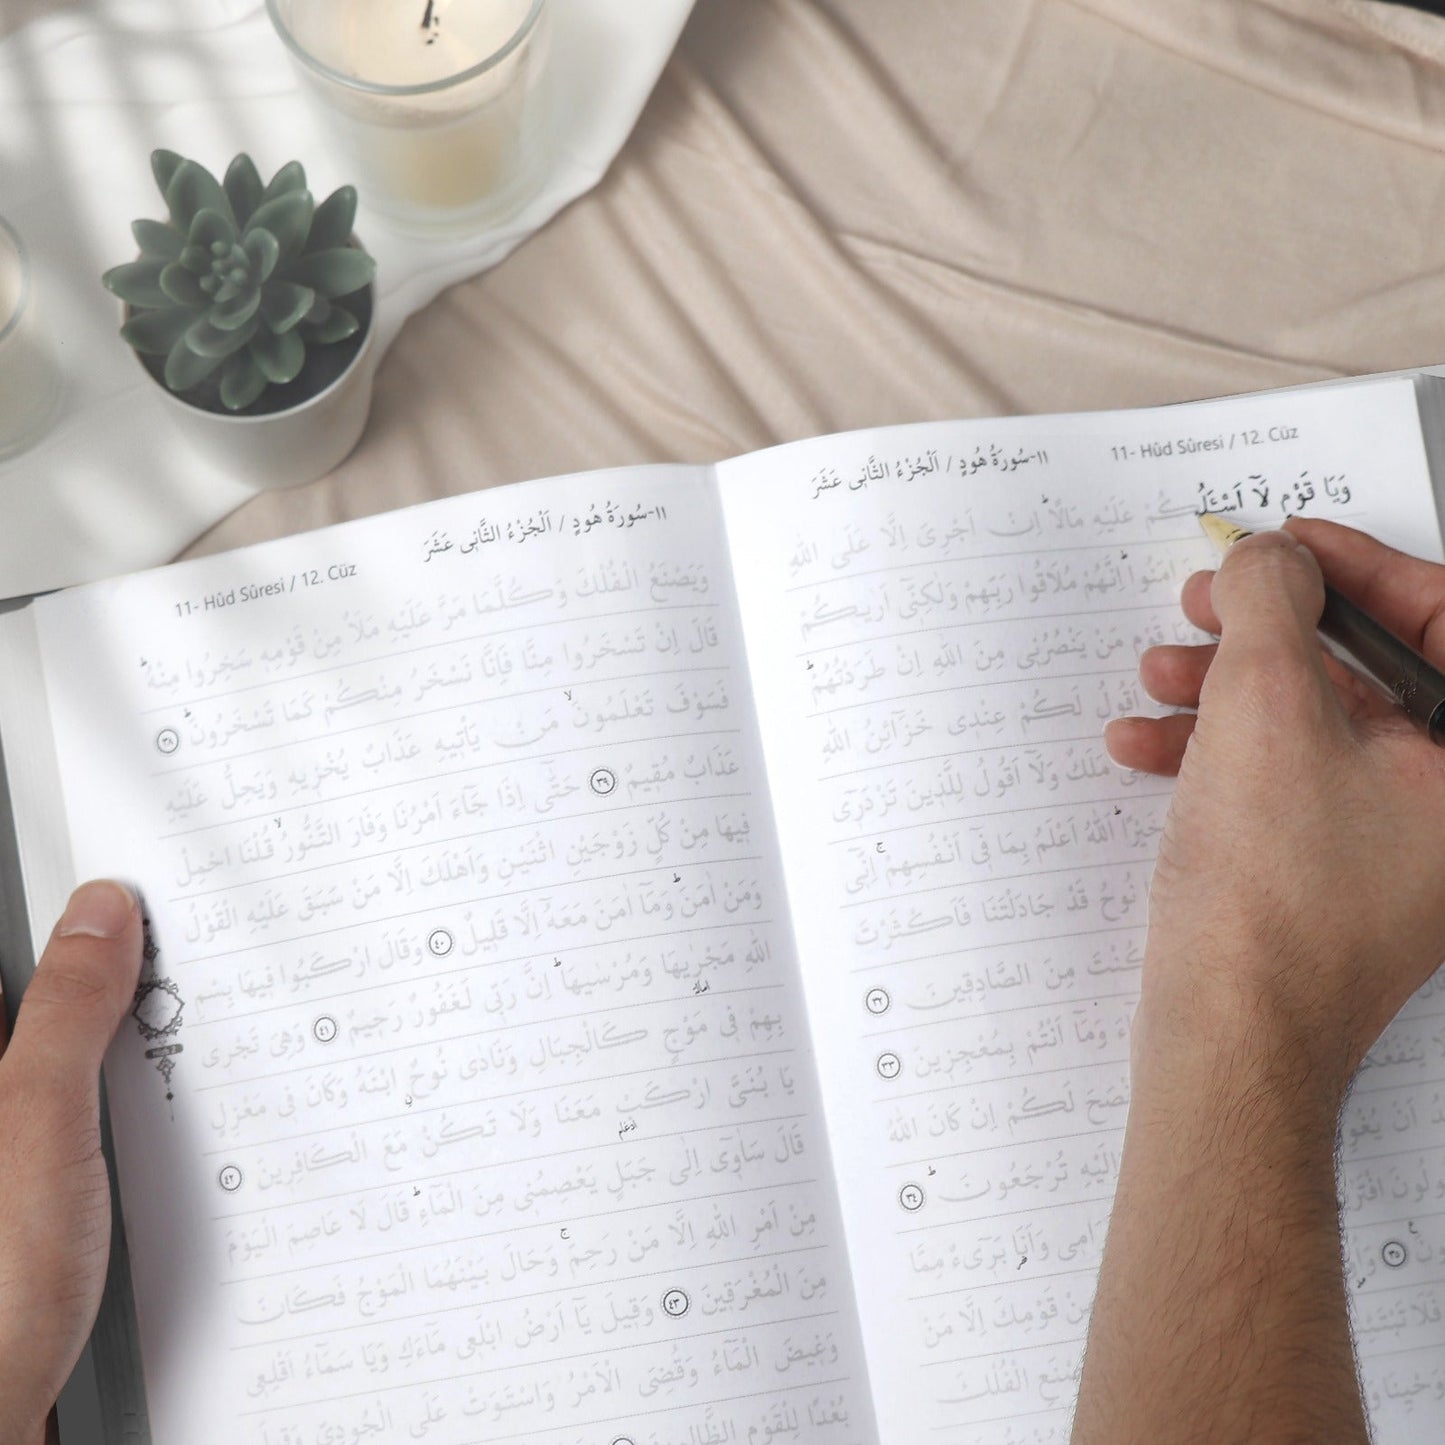 11- Hûd Sûresi / 12. Cüz
١١-سُورَةُ هُودٍ / اَلْجُزْءُ الثَّانٖى عَشَرَ
وَيَا قَوْمِ لَٓا اَسْـَٔلُكُمْ عَلَيْهِ مَالًاؕ اِنْ اَجْرِىَ اِلَّا عَلَى اللّٰهِ
اٰمَنُواؕ اِنَّهُمْ مُلَاقُوا رَبِّهِمْ وَلٰكِنّٖٓى اَرٰيكُمْ
وَيَا قَوْمِ مَنْ يَنْصُرُنٖى مِنَ اللّٰهِ اِنْ طَرَدْتُهُمْؕ
اَقُولُ لَكُمْ عِنْدٖى خَزَٓائِنُ اللّٰهِ
مَلَكٌ وَلَٓا اَقُولُ لِلَّذٖينَ تَزْدَرٖٓى
خَيْرًاؕ اَللّٰهُ اَعْلَمُ بِمَا فٖٓى اَنْفُسِهِمْۚ اِنّٖٓى
نُوحُ قَدْ جَادَلْتَنَا فَاَكْثَرْتَ
كُنْتَ مِنَ الصَّادِقٖينَ ٣٢
وَمَٓا اَنْتُمْ بِمُعْجِزٖينَ ٣٣
لَكُمْ اِنْ كَانَ اللّٰهُ
اِلَيْهِ تُرْجَعُونَؕ ٣٤
وَاَنَا بَرٖٓىءٌ مِمَّا
قَوْمِكَ اِلَّا مَنْ
الْفُلْكَ
٣٥
١١-سُورَةُ هُودٍ / اَلْجُزْءُ الثَّانٖى عَشَرَ
11- Hûd Sûresi / 12. Cüz
وَيَصْنَعُ الْفُلْكَ وَكُلَّمَا مَرَّ عَلَيْهِ مَلَاٌ مِنْ قَوْمِهٖ سَخِرُوا مِنْهُؕ
قَالَ اِنْ تَسْخَرُوا مِنَّا فَاِنَّا نَسْخَرُ مِنْكُمْ كَمَا تَسْخَرُونَؕ ٣٨
فَسَوْفَ تَعْلَمُونَۙ مَنْ يَأْتٖيهِ عَذَابٌ يُخْزٖيهِ وَيَحِلُّ عَلَيْهِ
عَذَابٌ مُقٖيمٌ ٣٩ حَتّٰٓى اِذَا جَٓاءَ اَمْرُنَا وَفَارَ التَّنُّورُۙ قُلْنَا احْمِلْ
فٖيهَا مِنْ كُلٍّ زَوْجَيْنِ اثْنَيْنِ وَاَهْلَكَ اِلَّا مَنْ سَبَقَ عَلَيْهِ الْقَوْلُ
وَمَنْ اٰمَنَؕ وَمَٓا اٰمَنَ مَعَهُٓ اِلَّا قَلٖيلٌ ٤٠ وَقَالَ ارْكَبُوا فٖيهَا بِسْمِ
اللّٰهِ مَجْرٰۭيهَا وَمُرْسٰيهَاؕ اِنَّ رَبّٖى لَغَفُورٌ رَحٖيمٌ ٤١ وَهِىَ تَجْرٖى
بِهِمْ فٖى مَوْجٍ كَالْجِبَالِ وَنَادٰى نُوحٌ ابْنَهُ وَكَانَ فٖى مَعْزِلٍ
يَا بُنَىَّ ارْكَبْ مَعَنَا وَلَا تَكُنْ مَعَ الْكَافِرٖينَ ٤٢
قَالَ سَاٰوٖٓى اِلٰى جَبَلٍ يَعْصِمُنٖى مِنَ الْمَٓاءِؕ قَالَ لَا عَاصِمَ الْيَوْمَ
مِنْ اَمْرِ اللّٰهِ اِلَّا مَنْ رَحِمَۚ وَحَالَ بَيْنَهُمَا الْمَوْجُ فَكَانَ
مِنَ الْمُغْرَقٖينَ ٤٣ وَقٖيلَ يَٓا اَرْضُ ابْلَعٖى مَٓاءَكِ وَيَا سَمَٓاءُ اَقْلِعٖى
وَغٖيضَ الْمَٓاءُ وَقُضِىَ الْاَمْرُ وَاسْتَوَتْ عَلَى الْجُودِىِّ وَقٖيلَ
بُعْدًا لِلْقَوْمِ الظَّالِمٖينَ